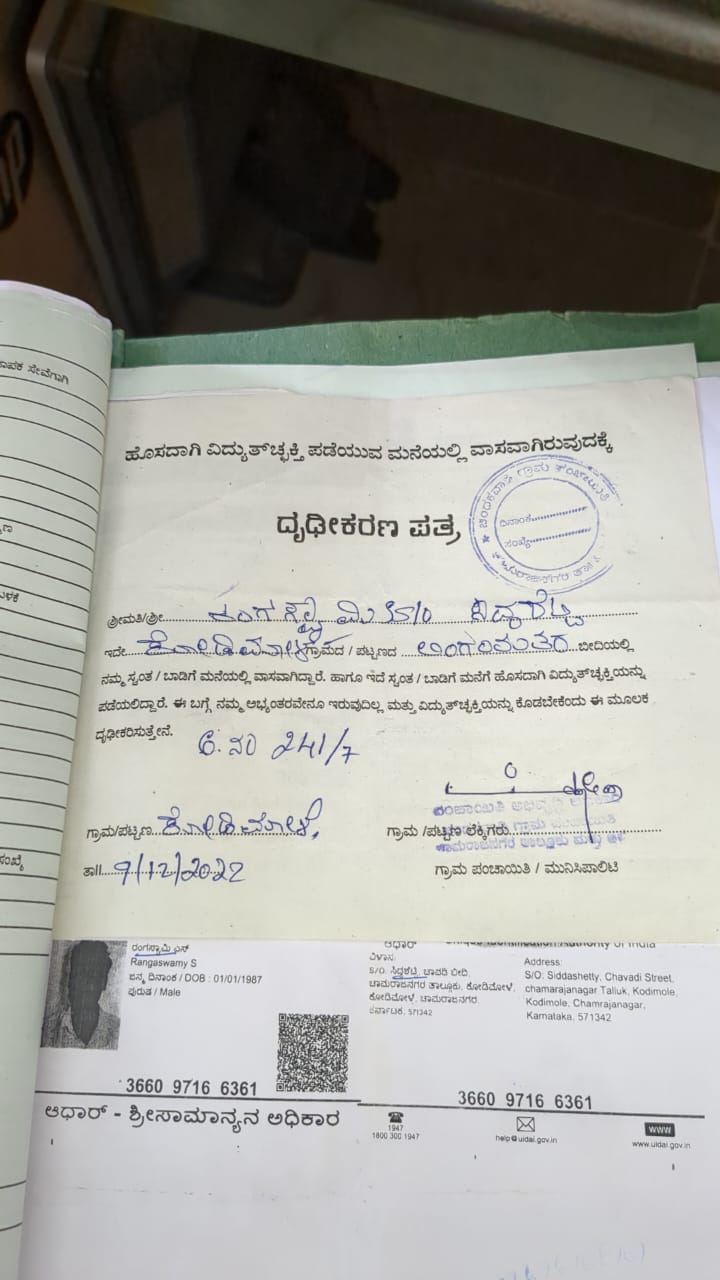 hp
ಹೊಸದಾಗಿ ವಿದ್ಯುತ್‌ಚ್ಛಕ್ತಿ ಪಡೆಯುವ ಮನೆಯಲ್ಲಿ ವಾಸವಾಗಿರುವುದಕ್ಕೆ
ದೃಢೀಕರಣ ಪತ್ರ
ಗ್ರಾಮ ಪಂಚಾಯಿತಿ
ದಿನಾಂಕ
ಸಂಖ್ಯೆ
ಶ್ರೀಮತಿ/ಶ್ರೀ ರಂಗಸ್ವಾಮಿ S/o ಸಿದ್ದಶೆಟ್ಟಿ
ಇದೇ ಕೋಡಿಮೋಳೆ ಗ್ರಾಮದ / ಪಟ್ಟಣದ ಬೀದಿಯಲ್ಲಿ
ನಮ್ಮ ಸ್ವಂತ / ಬಾಡಿಗೆ ಮನೆಯಲ್ಲಿ ವಾಸವಾಗಿದ್ದಾರೆ. ಹಾಗೂ ಇದೆ ಸ್ವಂತ / ಬಾಡಿಗೆ ಮನೆಗೆ ಹೊಸದಾಗಿ ವಿದ್ಯುತ್‌ಚ್ಛಕ್ತಿಯನ್ನು
ಪಡೆಯಲಿದ್ದಾರೆ. ಈ ಬಗ್ಗೆ ನಮ್ಮ ಅಭ್ಯಂತರವೇನೂ ಇರುವುದಿಲ್ಲ ಮತ್ತು ವಿದ್ಯುತ್‌ಚ್ಛಕ್ತಿಯನ್ನು ಕೊಡಬೇಕೆಂದು ಈ ಮೂಲಕ
ದೃಢೀಕರಿಸುತ್ತೇನೆ. 241/7
ಗ್ರಾಮ/ಪಟ್ಟಣ ಕೋಡಿಮೋಳೆ
ಗ್ರಾಮ /ಪಟ್ಟಣ ಲೆಕ್ಕಿಗರು
ತಾ|| 9/12/2022
ಗ್ರಾಮ ಪಂಚಾಯಿತಿ / ಮುನಿಸಿಪಾಲಿಟಿ
ರಂಗಸ್ವಾಮಿ ಎಸ್
Rangaswamy S
ಜನ್ಮ ದಿನಾಂಕ / DOB : 01/01/1987
ಪುರುಷ / Male
3660 9716 6361
ಆಧಾರ್ - ಶ್ರೀಸಾಮಾನ್ಯನ ಅಧಿಕಾರ
ಆಧಾರ್
Unique Identification Authority of India
ವಿಳಾಸ:
S/O: ಸಿದ್ದಶೆಟ್ಟಿ, ಚಾವಡಿ ಬೀದಿ,
ಚಾಮರಾಜನಗರ ತಾಲ್ಲೂಕು, ಕೋಡಿಮೋಳೆ,
ಕೋಡಿಮೋಳೆ, ಚಾಮರಾಜನಗರ,
ಕರ್ನಾಟಕ, 571342
Address:
S/O: Siddashetty, Chavadi Street,
chamarajanagar Talluk, Kodimole,
Kodimole, Chamrajanagar,
Karnataka, 571342
3660 9716 6361
1947
1800 300 1947
help@uidai.gov.in
WWW
www.uidai.gov.in